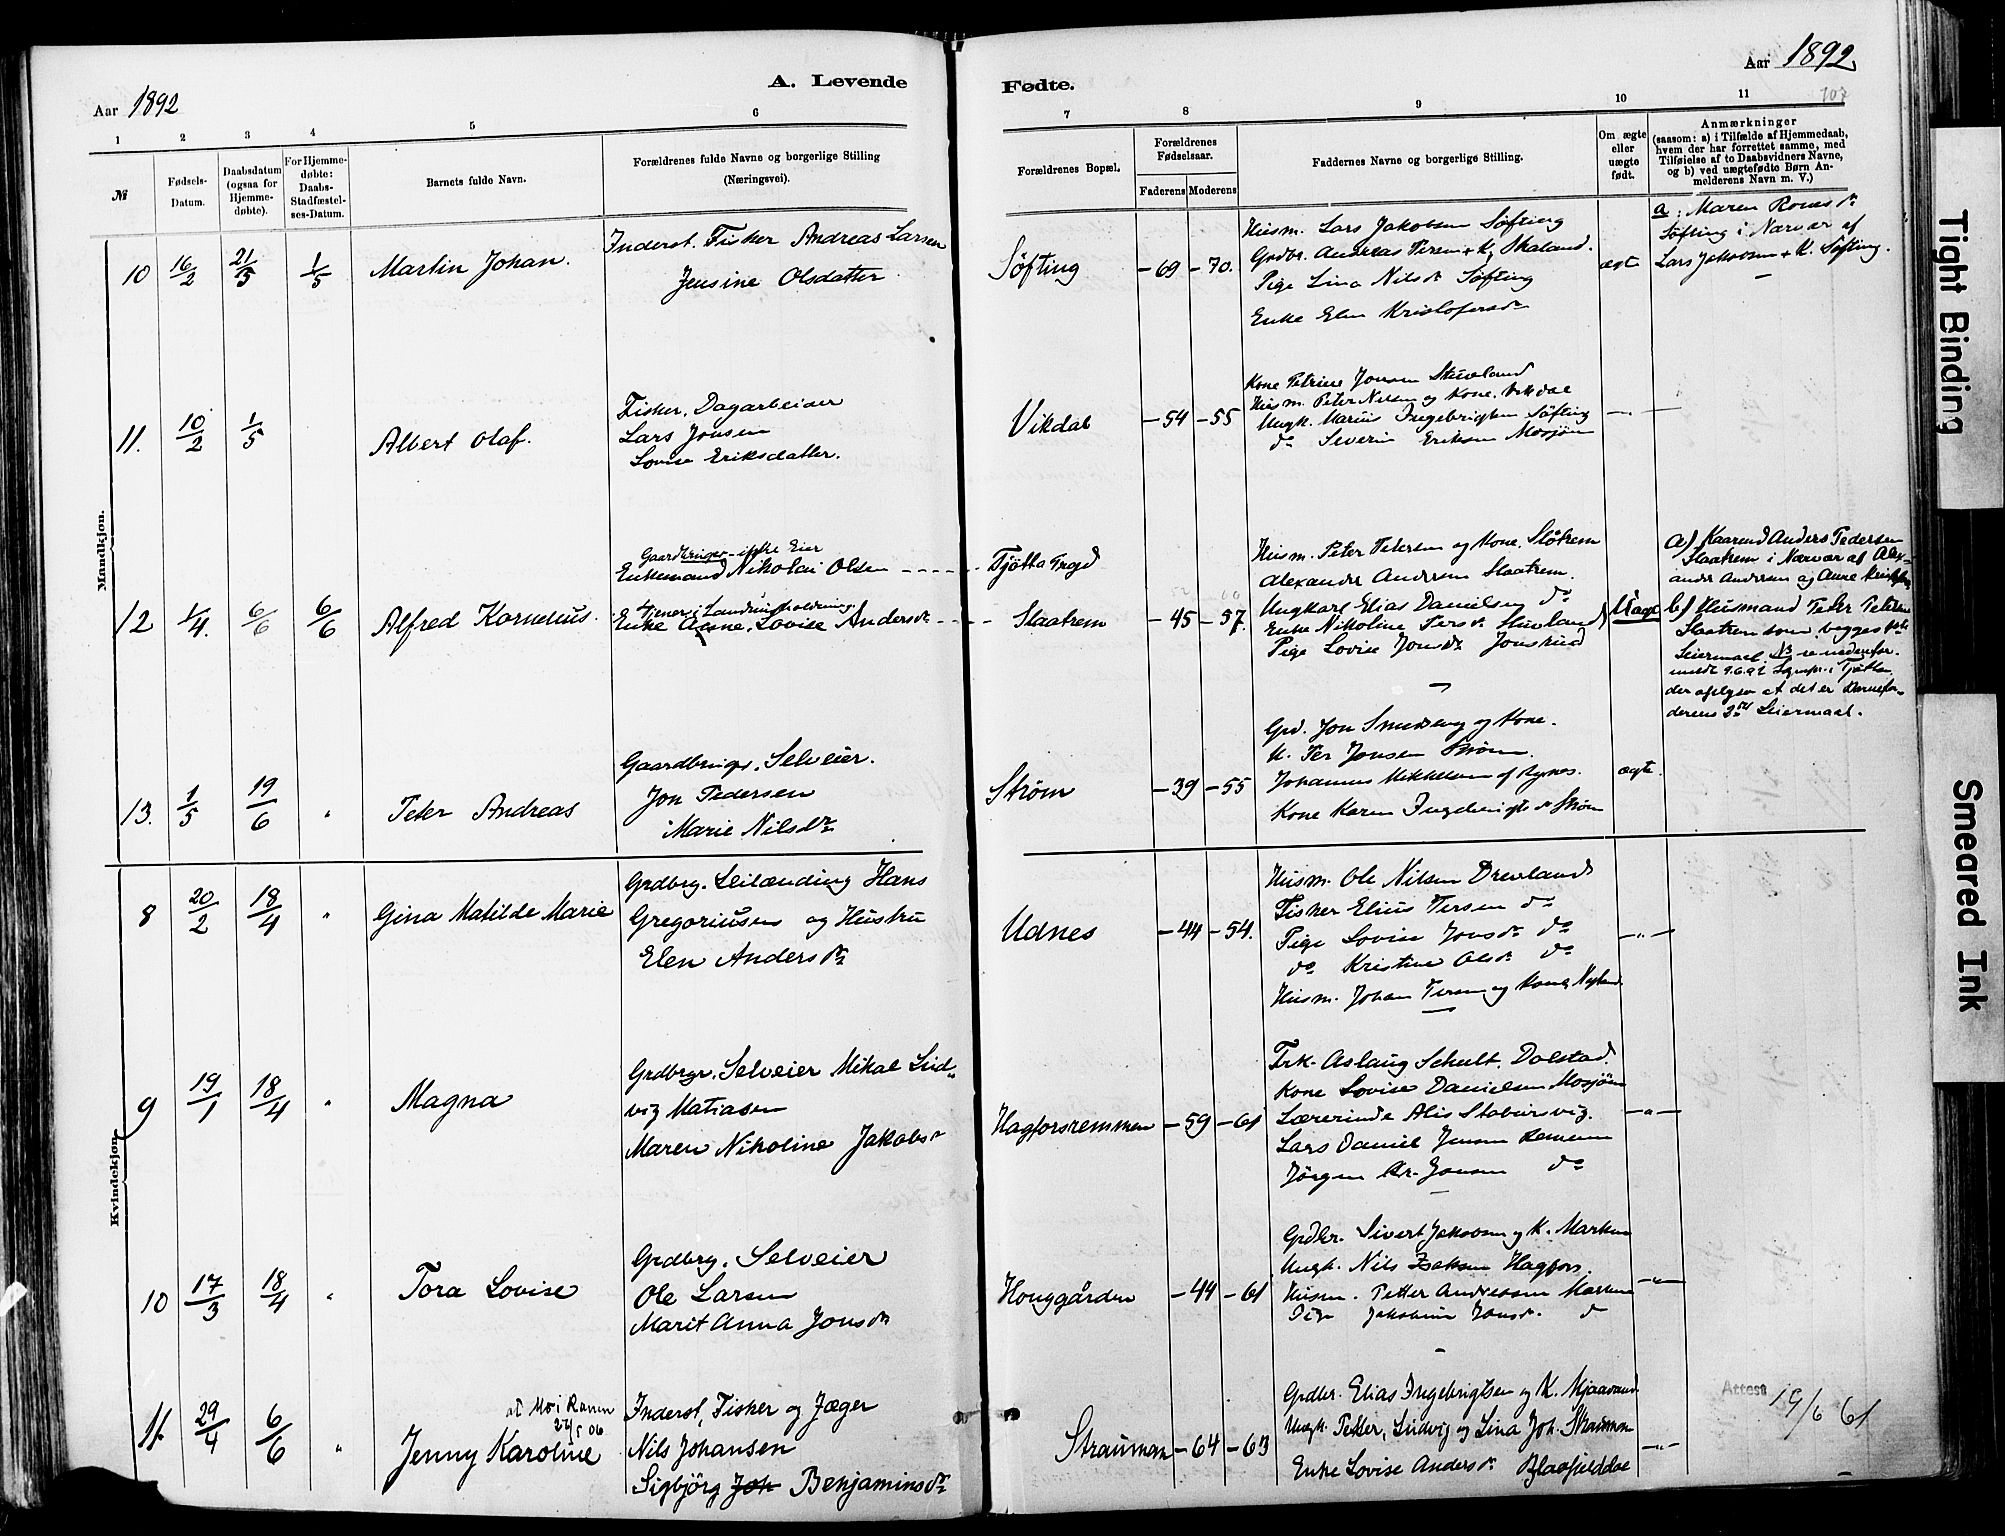 Aar 1892
A. Levende
Fødte.
Aar 1892.
107
1 2 3 4 5 6 7 8 9 10 11
№
Fødsels-
Datum.
Daabsdatum
(ogsaa for
Hjemme-
døbte).
For Hjemme-
døbte:
Daabs-
Stadfæstel-
ses-Datum.
Barnets fulde Navn.
Forældrenes fulde Navne og borgerlige Stilling
(Næringsvei).
Forældrenes Bopæl.
Forældrenes
Fødselsaar.
Faderens Moderens
Faddernes Navne og borgerlige Stilling.
Om ægte
eller
uægte
født.
Anmærkninger
(saasom: a) i Tilfælde af Hjemmedaab,
hvem der har forrettet samme, med
Tilføielse af to Daabsvidners Navne,
og b) ved uægtefødte Børn An-
melderens Navn m. V.)
Mandkjøn.
10 16/2 21/3 1/5 Martin Johan.
Inderst. Fisker Andreas Larsen
Jensine Olsdatter
Søfting -69 -70.
Husm. Lars Jakobsen Søfting
Grdbr. Andreas Persen + K. Skaland.
Pige Lina Nilsdr Søfting
Enke Elen Kristofersdr
ægte
a. Maren Ronesdr
Søfting i Nærvær af
Lars Jakobsen + K. Søfting.
11. 10/2 1/5 Albert Olaf.
Fisker, Dagarbeider
Lars Jonsen
Lovise Eriksdatter.
Vikdal -54 -55
Kone Petrine Jonsen Stuvland
Husm. Peter Nilsen og Kone. Vikdal
Ungk. Marius Ingebrigtsen Søfting
do Severin Eriksen Mosjøen
—"—
12 1/4. 6/6 6/6 Alfred Kornelius.
Gaardbruger - ikke Eier
Enkemand Nikolai Olsen
Tjener i Landhusholdning
Enke Anne Lovise Andersdr
Tjøtta Prgd
Slaatrem -45 -57.
Husm. Peter Petersen og Kone. Slåtrem
Alexander Andersen Slaatrem.
Ungkarl Elias Danielsen do
Enke Nikoline Persdr Stuvland
Pige Lovise Jonsdr Jonsrud
Uægte
a) Kaarend Anders Pedersen
Slaatrem i Nærvær af Alex-
ander Andersen og Anne
b) Husmand Peter Petersen
Slaatrem som begges
Leiermaal. NB
der oplyser at det er Barnefa-
derens 2det Leiermaal.
13. 1/5 19/6 " Peter Andreas
Gaardbruger, Selveier.
Jon Pedersen
Marie Nilsdr
Strøm -39 -55
Grd. Jon Smedseng og Kone.
U. Per Jonsen Strøm.
Johannes Mikkelsen af Rynes.
Kone Karen Ingebrigtsdr Strøm
ægte.
Kvindekjøn.
8 20/2 18/4 " Gina Matilde Marie
Grdbrg. Leilænding Hans
Gregoriusen og Hustru
Elen Andersdr
Udnes -44 -54.
Husm. Ole Nilsen Drevland
Fisker Elius Persen do
Pige Lovise Jonsdr do
do Kristine Olsdr do
Husm. Johan Persen og Kone Nyland
—"—
9 19/1 18/4 " Magna
Grdbrgr. Selveier Mikal Lud-
vig Matiasen
Maren Nikoline Jakobsdr
Hagforsremmen -59 -61
Frk. Aslaug Schult. Dolstad.
Kone Lovise Danielsen Mosjøen
Lærerinde Alis Stabursvig.
Lars Daniel Jensen Remmen
Jørgen Kr. Jonsen do
—"—
10 17/3 18/4 " Tora Lovise
Grdbrg. Selveier
Ole Larsen
Marit Anna Jonsdr
Honggården -44 -61
Grdbr. Sivert Jakobsen og K. Marken
Ungk. Nils Isaksen Hagfors.
Husm. Petter Andreasen Marken
Pige Jakobine Jonsdr. do
—"—
11 29/4 6/6 " Jenny Karoline
at Mo i Ranen
27/5 06
Inderst, Fisker og Jæger
Nils Johansen
Sigbjörg Joh Benjaminsdr
Strauman -64 -63
Grdbr. Elias Ingebrigtsen og K. Mjaavand
Ungk. Petter, Ludvig og Lina Joh. Strauman
Enke Lovise Andersdr Blaafjelddal
—"—
Attest 19/6 61
Tight Binding
Smeared Ink